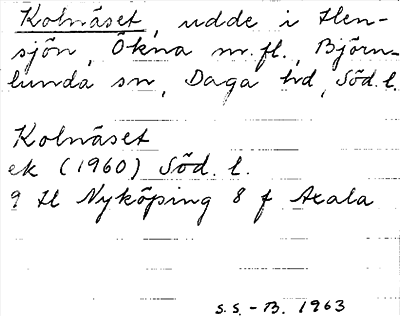 Kolnäset, udde i Hen-
sjön, Ökna m. fl., Björn-
lunda sn, Daga hd, Söd. l.
Kolnäset
ek (1960) Söd. l.
9 H Nyköping 8 f Axala
S.S. - B. 1963